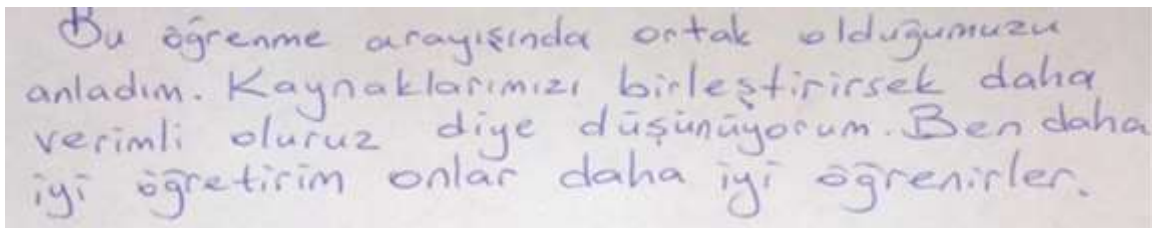 Bu öğrenme arayışında ortak olduğumuzu
anladım. Kaynaklarımızı birleştirirsek daha
verimli oluruz diye düşünüyorum. Ben daha
iyi öğretirim onlar daha iyi öğrenirler.